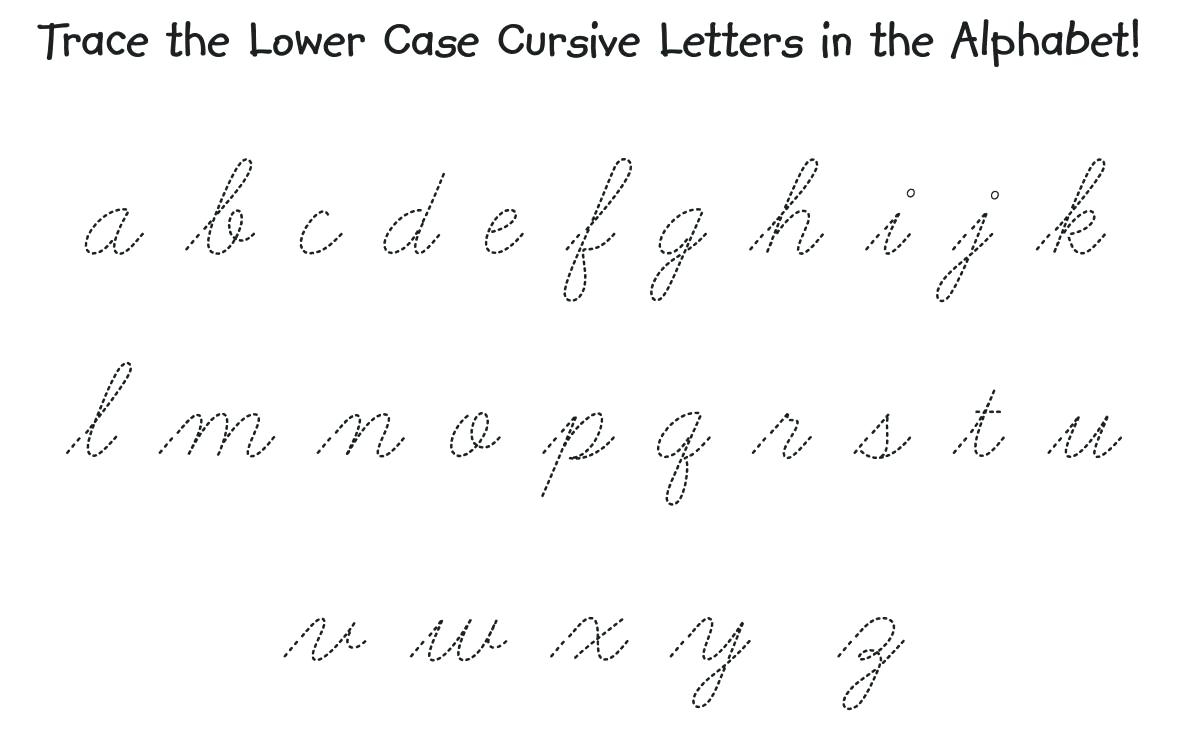 Trace the Lower Case Cursive Letters in the Alphabet!
a b c d e f g h i j k
l m n o p q r s t u
v w x y z